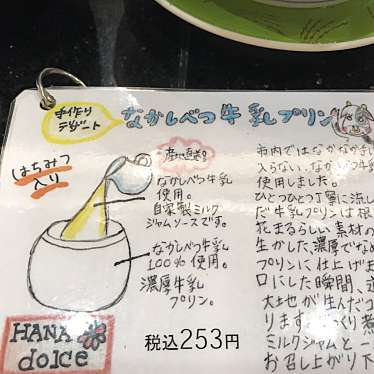 手作り
デザート
なかしべつ牛乳プリン
はちみつ
入り
産地直送。
なかしべつ牛乳
使用。
自家製ミルク
ジャムソースです。
なかしべつ牛乳
100%使用。
濃厚牛乳
プリン。
HANA
dolce
税込253円
市内ではなかなか
入らない、なかしべつ牛
使用しました。
ひとつひとつ丁寧に流し
だ牛乳プリンは根
花まるらしい素材の
生かした、濃厚でなめ
プリンに仕上げま
口にした瞬間、
大地が生んだコ
ります。じっくり煮
ミルクジャムと一
お召し上がり下